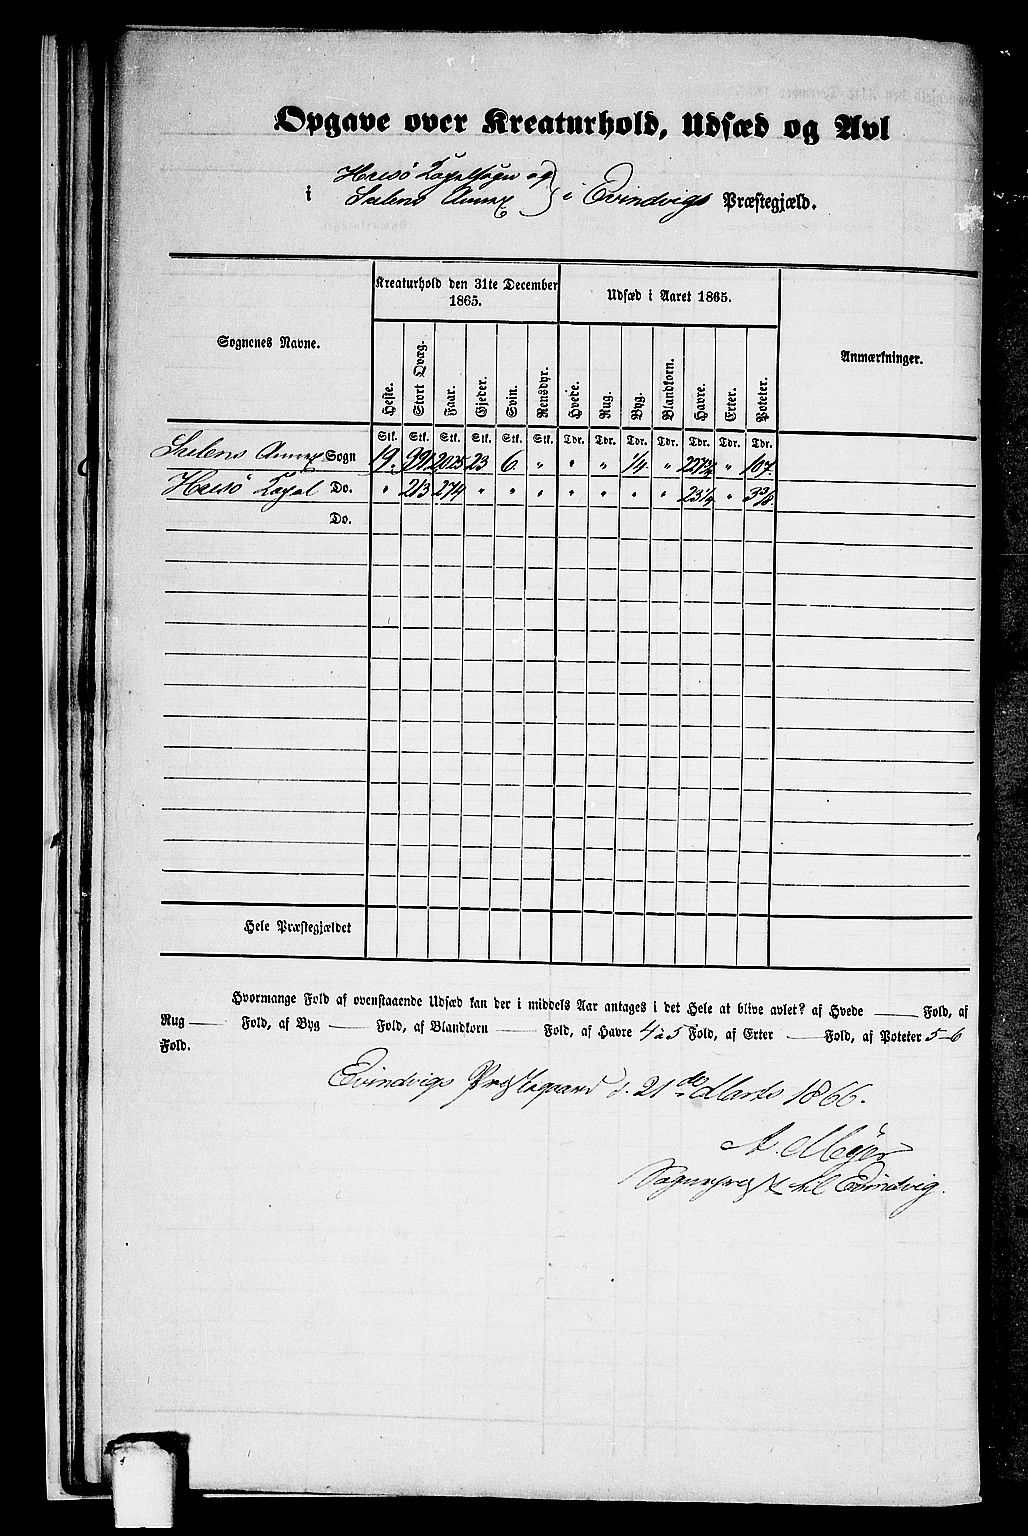 Opgave over Kreaturhold, Udsæd og Avl
Husø Capelsogn og
i Sulens Annex } i Evindvigs Præstegjæld.
Kreaturhold den 31te December 1865.
Udsæd i Aaret 1865.
Sognenes Navne.
Anmærkninger.
Heste. Stort Qvæg. Faar. Gjeder. Svin. Rensdyr. Hvede. Rug. Byg. Blandkorn. Havre. Erter. Poteter.
Stk. Stk. Stk. Stk. Stk. Stk. Tdr. Tdr. Tdr. Tdr. Tdr. Tdr. Tdr.
Sulens Annex Sogn 19. 991 2025 23 6 " " " 1/4 " 227 3/4 " 107.
Husø Capel Do. " 213 274 " " " " " " " 23 1/4 "
Do.
Hele Præstegjældet
Hvormange Fold af ovenstaaende Udsæd kan der i middels Aar antages i det Hele at blive avlet? af Hvede —— Fold, af
Rug —— Fold, af Byg —— Fold, af Blandkorn —— Fold, af Havre 4 à 5 Fold, af Erter —— Fold, af Poteter 5-6
Fold.
Evindvigs Præstegaard d. 21de Marts 1866.
A. Meyer
Sognepræst til Evindvig.